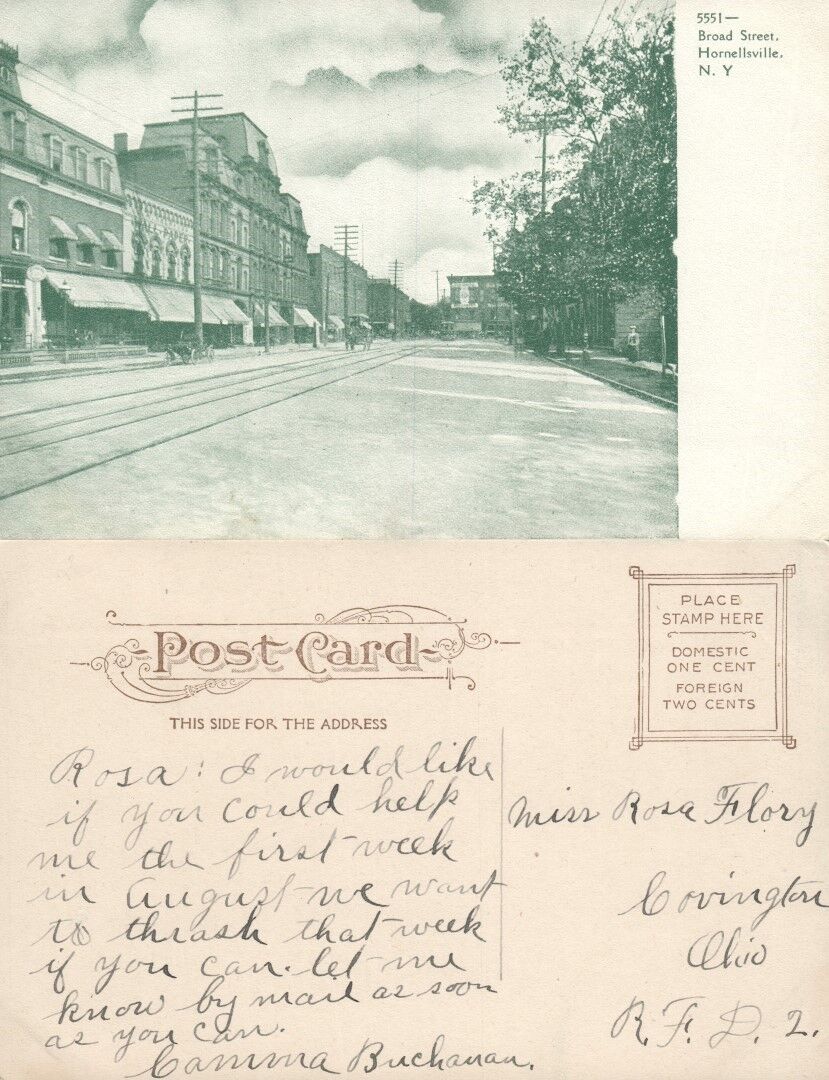 5551—
Broad Street,
Hornellsville,
N. Y
Post Card
THIS SIDE FOR THE ADDRESS
PLACE
STAMP HERE
DOMESTIC
ONE CENT
FOREIGN
TWO CENTS
Rosa: I would like
if you could help
me the first week
in August we want
to thrash that week
if you can. let me
know by mail as soon
as you can.
Camma Buchanan.
Miss Rosa Flory
Covington
Ohio
R. F. D. 2.